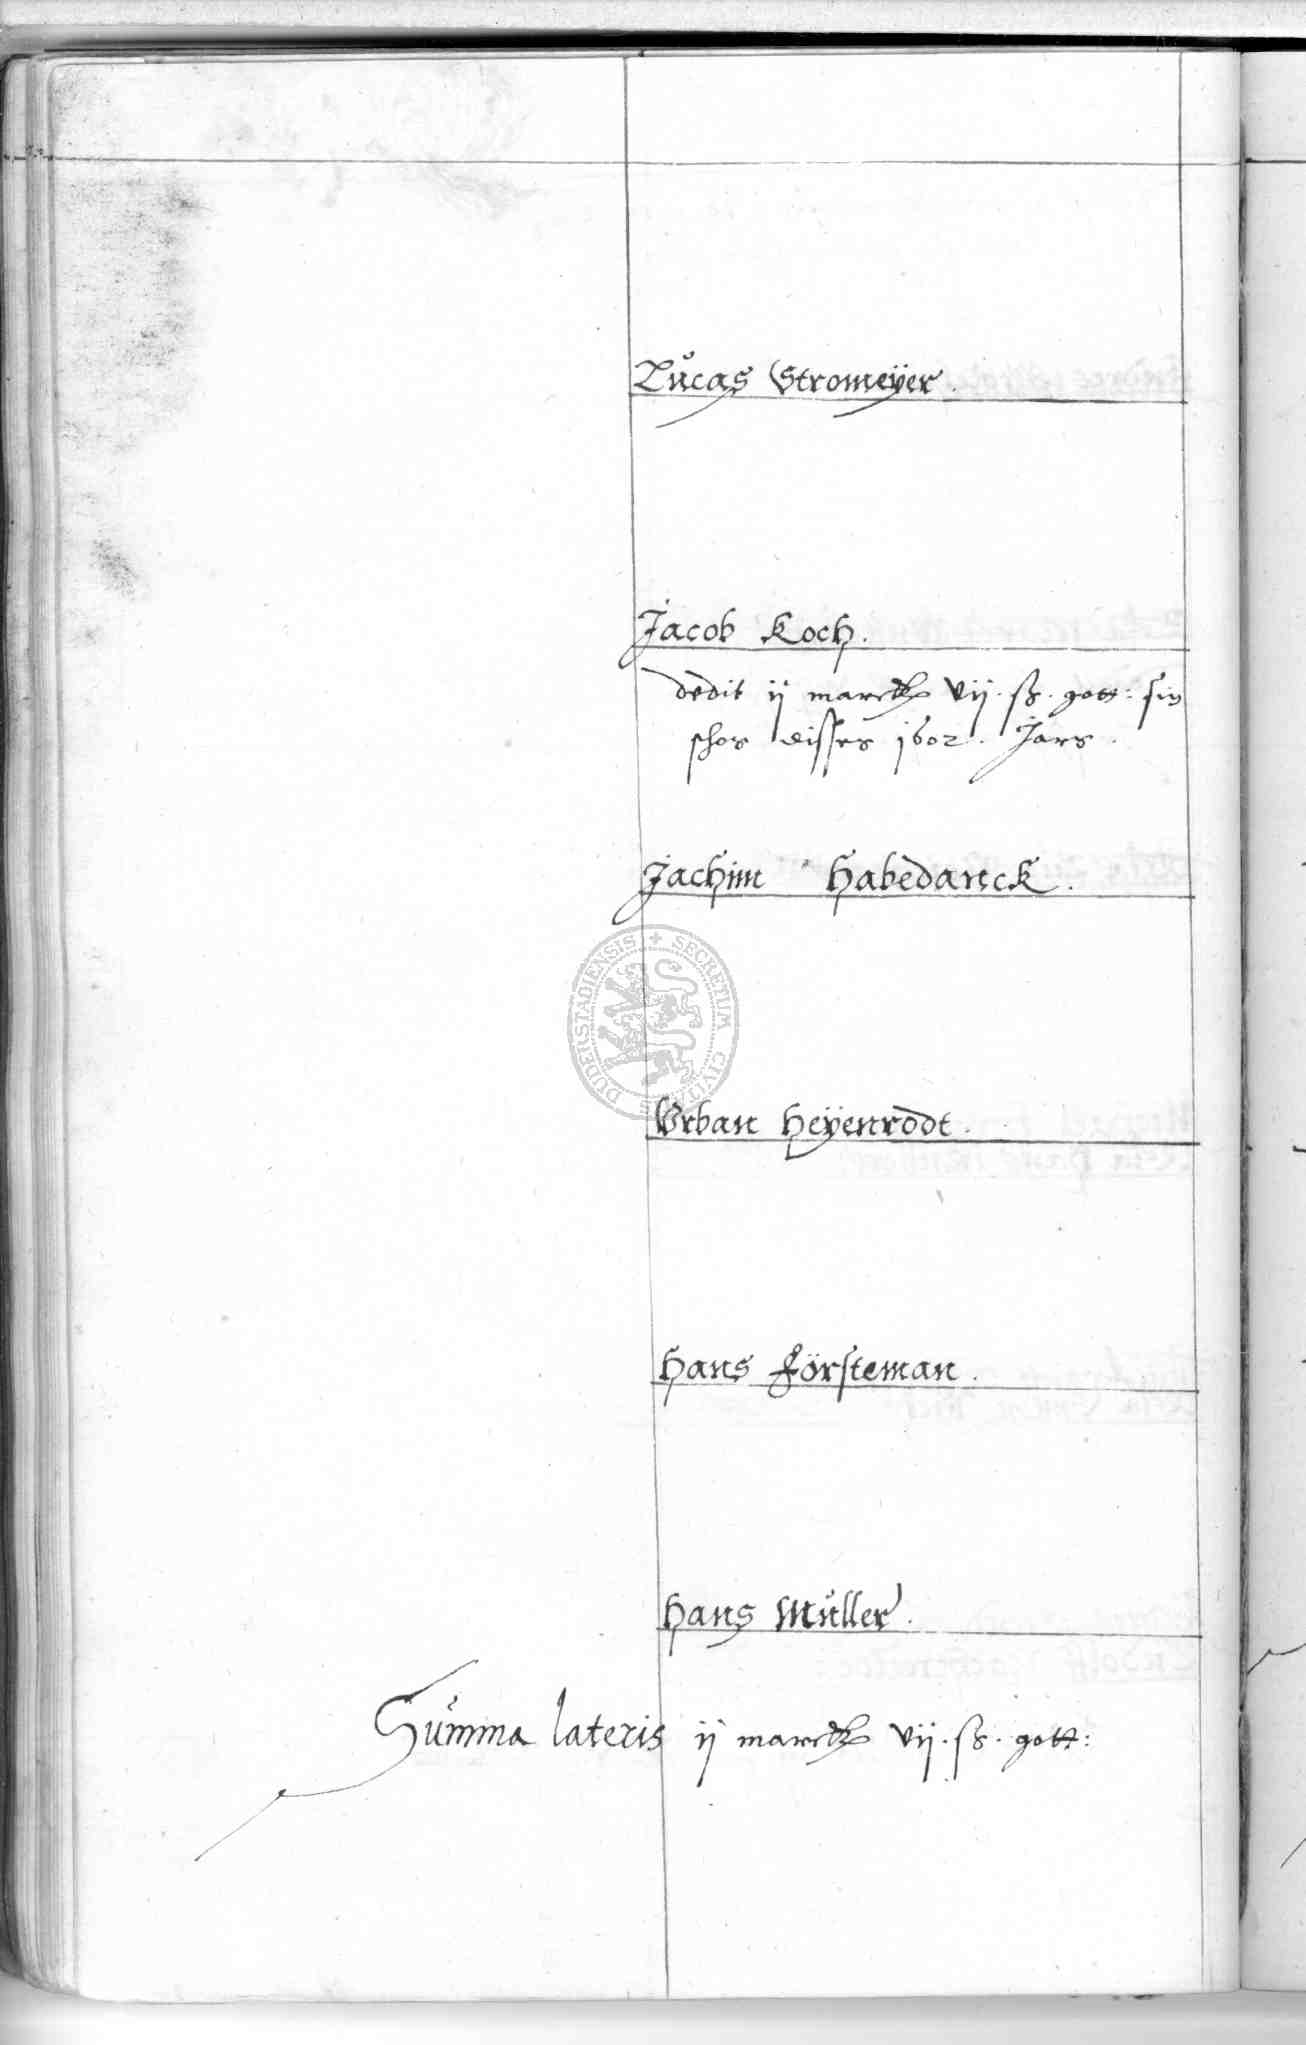 Lucas Stromeÿer.
Jacob Koch.
dedit ij marck vij. ß. gott: sin
schos disses 1602. Jars.
Jachim Habedanck.
DUDERSTADIENSIS + SECRETUM CIVITATIS
Vrban Heÿenrodt.
Hans Försteman.
Hans Müller.
Summa lateris ij marck vij. ß. gott: